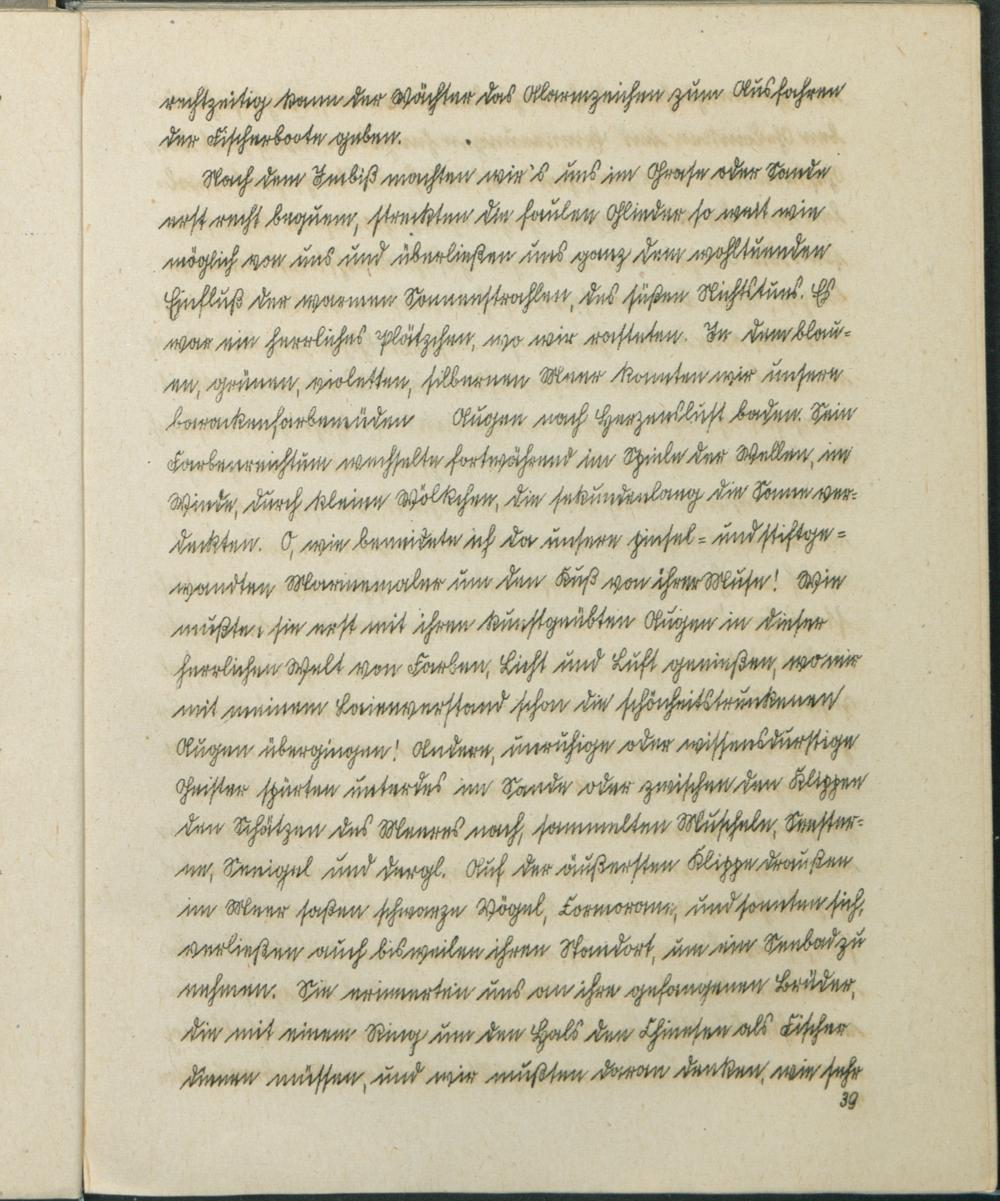 rechtzeitig kann der Wächter das Alarmzeichen zum Ausfahren
der Fischerboote geben.
Nach dem Imbiß machten wir's uns im Grase oder Sande
erst recht bequem, streckten die faulen Glieder so weit wie
möglich von uns und überließen uns ganz dem wohltuenden
Einfluß der warmen Sonnenstrahlen, des süßen Nichtstuns. Es
war ein herrliches Plätzchen, wo wir rasteten. In dem blau-
en, grünen, violetten, silbernen Meer konnten wir unsere
barackenfarbemüden Augen nach Herzenslust baden. Sein
Farbenreichtum wechselte fortwährend im Spiele der Wellen, im
Winde, durch kleine Wölkchen, die sekundenlang die Sonne ver-
deckten. O, wie beneidete ich da unsere pinsel- und stiftge-
wandten Marinemaler um den Kuß von ihrer Muse! Wie
mußten sie erst mit ihren kunstgeübten Augen in dieser
herrlichen Welt von Farben, Licht und Luft genießen, wo mir
mit meinem Laienverstand schon die schönheitstrunkenen
Augen übergingen! Andere, unruhige oder wissensdurstige
Geister spürten unterdes im Sande oder zwischen den Klippen
den Schätzen des Meeres nach, sammelten Muscheln, Seester-
ne, Seeigel und dergl. Auf der äußersten Klippe draußen
im Meer saßen schwarze Vögel, Cormorane, und sonnten sich,
verließen auch bisweilen ihren Standort, um ein Seebad zu
nehmen. Sie erinnerten uns an ihre gefangenen Brüder,
die mit einem Ring um den Hals den Chinesen als Fischer
dienen müssen, und wir mußten daran denken, wie sehr
39